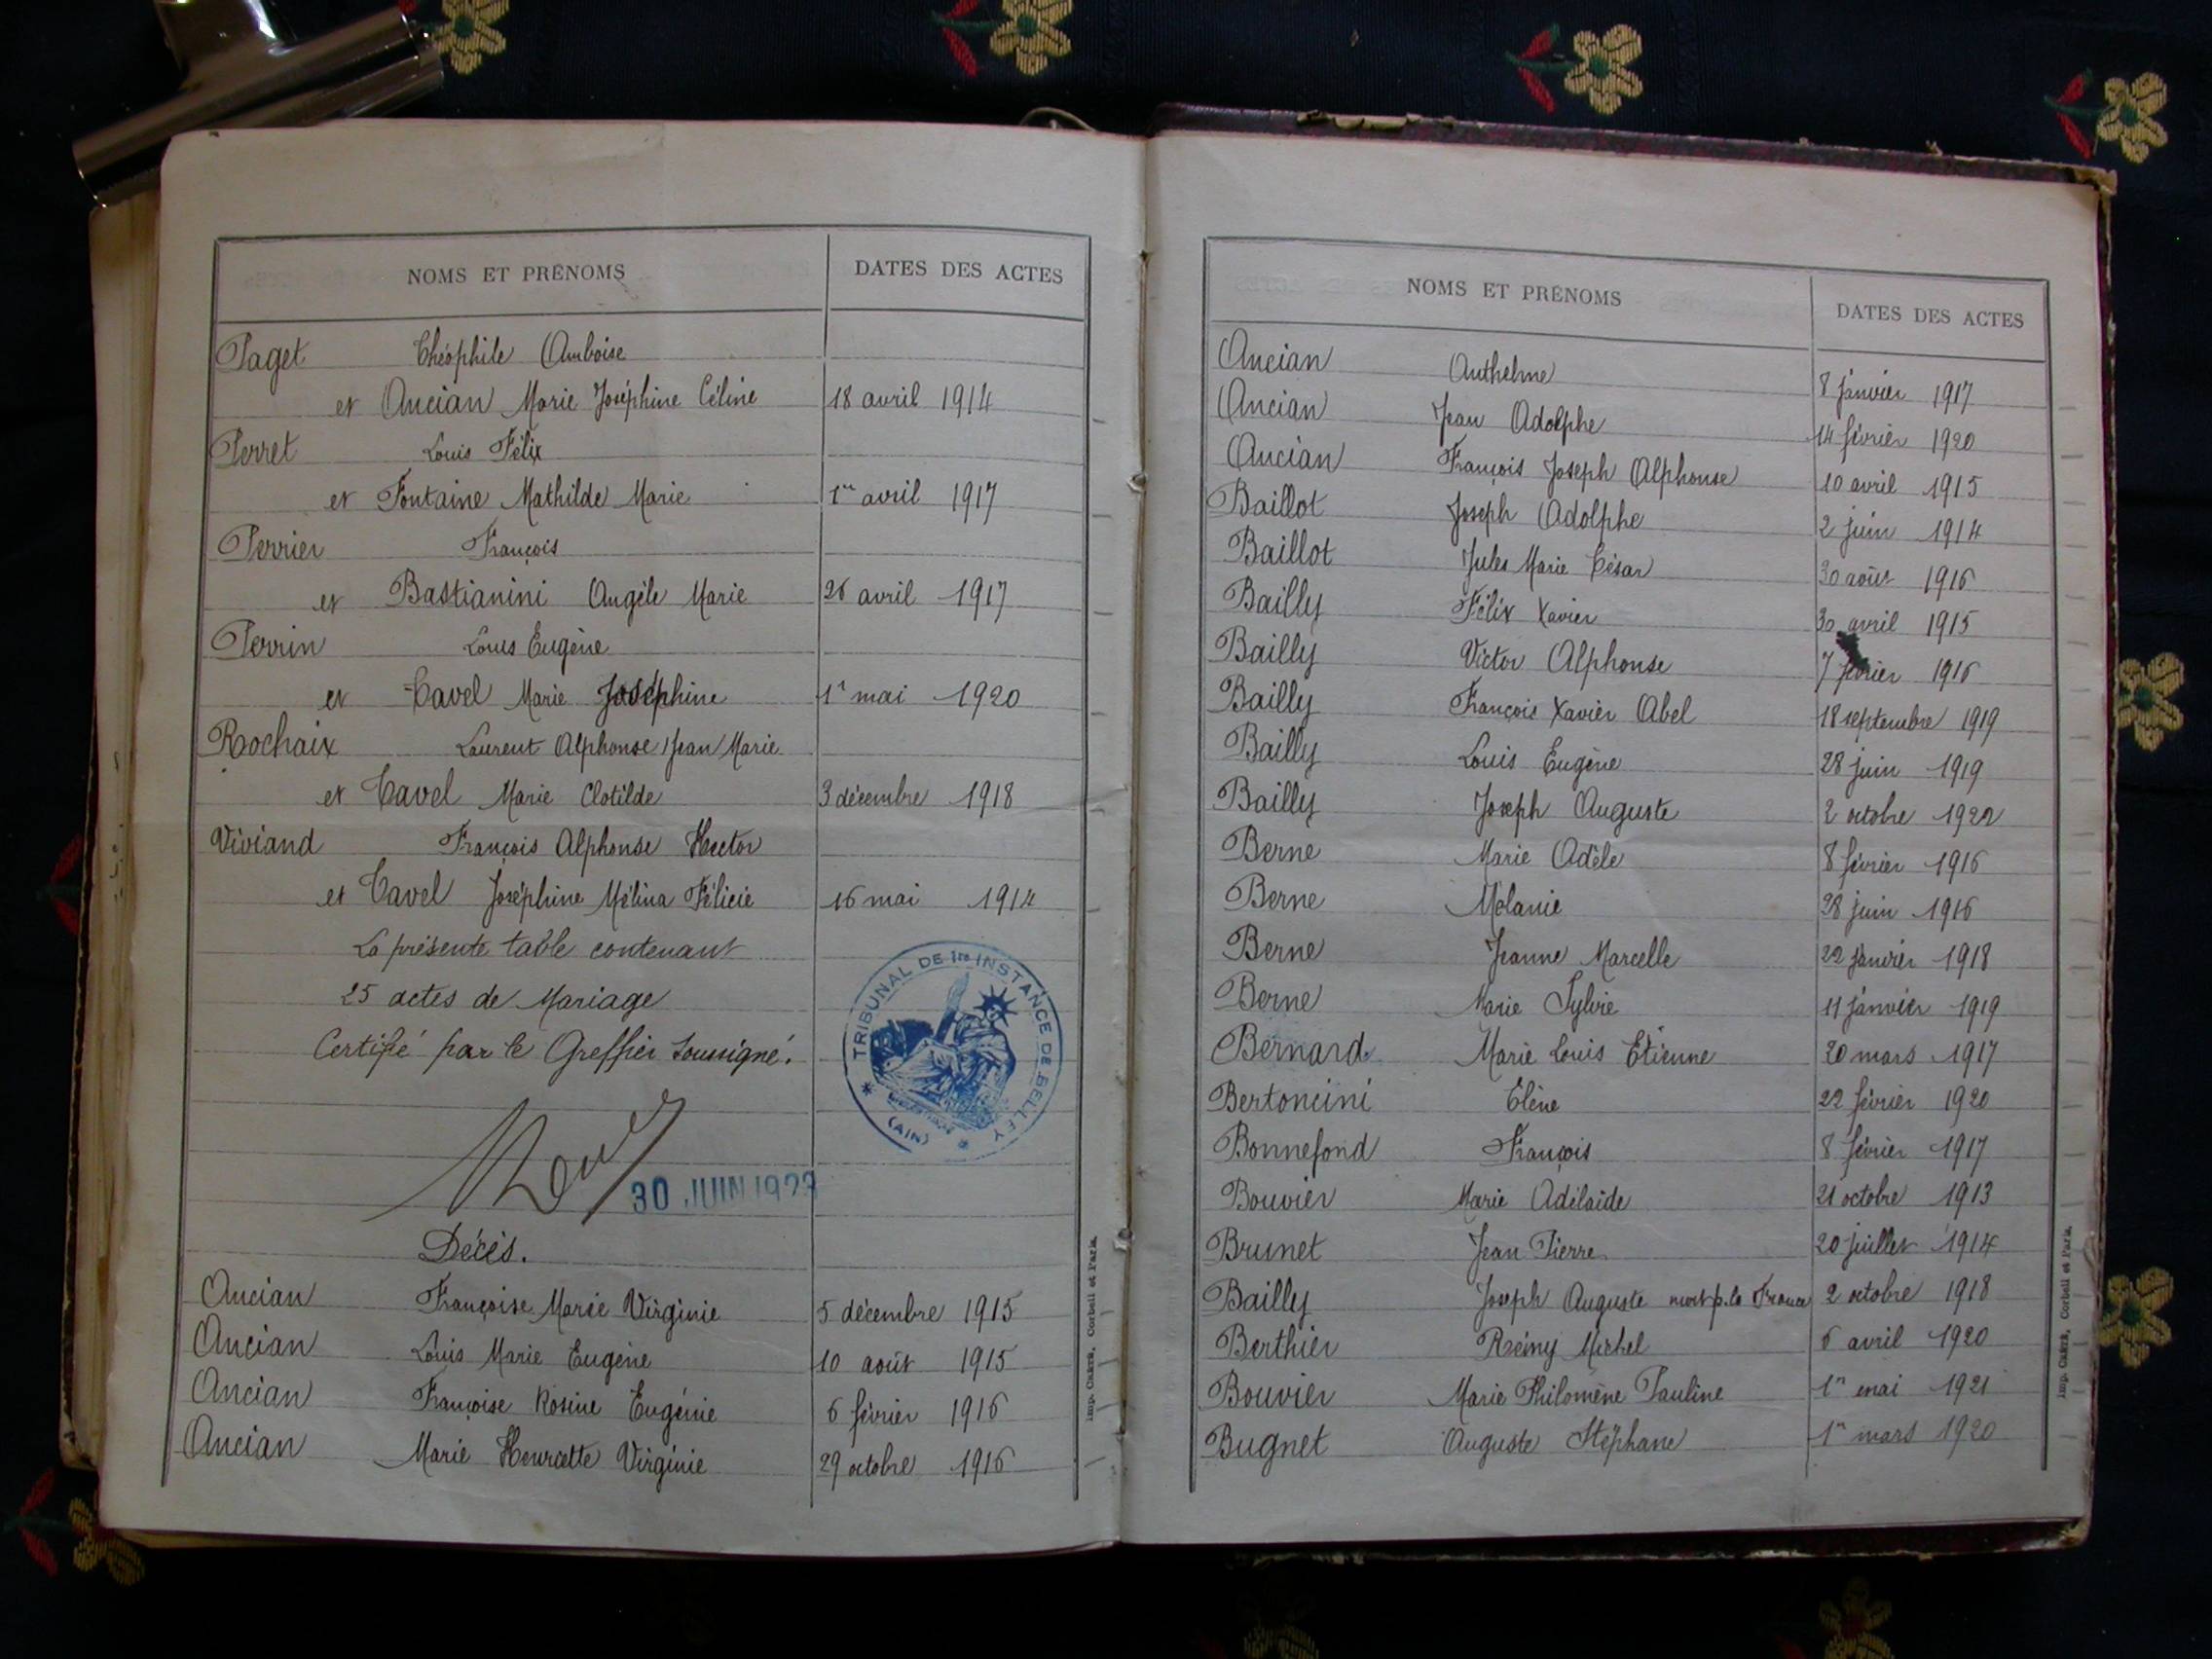 NOMS ET PRÉNOMS DATES DES ACTES
Paget Théophile Amboise
et Ancian Marie Joséphine Céline 18 avril 1914
Perret Louis Félix
et Fontaine Mathilde Marie 1er avril 1917
Perrier François
et Bastianini Angèle Marie 26 avril 1917
Perrin Louis Eugène
et Tavel Marie Joséphine 1er mai 1920
Rochaix Laurent Alphonse Jean Marie
et Tavel Marie Clotilde 3 décembre 1918
Viviand François Alphonse Hector
et Tavel Joséphine Mélina Félicie 16 mai 1914
La présente table contenant
25 actes de Mariage
Certifié par le Greffier soussigné.
TRIBUNAL DE 1re INSTANCE DE BELLEY
(AIN)
30 JUIN 1923
Décès.
Ancian Françoise Marie Virginie 5 décembre 1915
Ancian Louis Marie Eugène 10 août 1915
Ancian Françoise Rosine Eugénie 6 février 1916
Ancian Marie Henriette Virginie 29 octobre 1916
Imp. Corbeil et Paris.
NOMS ET PRÉNOMS DATES DES ACTES
Ancian Anthelme 8 janvier 1917
Ancian Jean Adolphe 14 février 1920
Ancian François Joseph Alphonse 10 avril 1915
Baillot Joseph Adolphe 2 juin 1914
Baillot Jules Marie César 30 août 1916
Bailly Félix Xavier 30 avril 1915
Bailly Victor Alphonse 7 février 1916
Bailly François Xavier Abel 18 septembre 1919
Bailly Louis Eugène 28 juin 1919
Bailly Joseph Auguste 2 octobre 1922
Berne Marie Adèle 8 février 1916
Berne Mélanie 28 juin 1916
Berne Jeanne Marcelle 22 janvier 1918
Berne Marie Sylvie 11 janvier 1919
Bernard Marie Louis Etienne 20 mars 1917
Bertoncini Élène 22 février 1920
Bonnefond François 8 février 1917
Bouvier Marie Adélaïde 21 octobre 1913
Brunet Jean Pierre 20 juillet 1914
Bailly Joseph Auguste mort p. la France 2 octobre 1918
Berthier Rémy Michel 6 avril 1920
Bouvier Marie Philomène Pauline 1er mai 1921
Bugnet Auguste Stéphane 1er mars 1920
Imp. Corbeil et Paris.